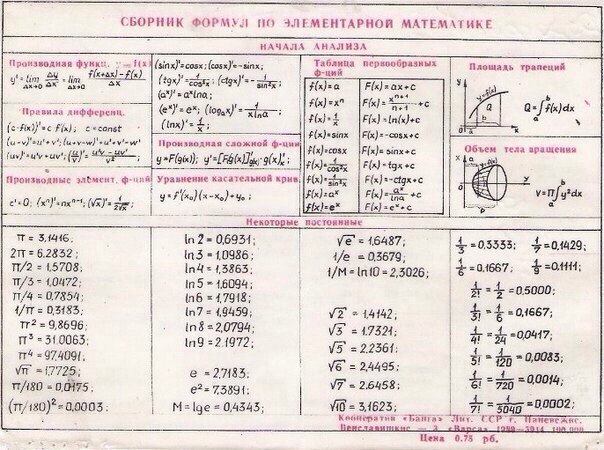 СБОРНИК ФОРМУЛ ПО ЭЛЕМЕНТАРНОЙ МАТЕМАТИКЕ
НАЧАЛА АНАЛИЗА
Производная функц. y=f(x)
y'=lim Δx→0 Δy/Δx = lim Δx→0 f(x+Δx)-f(x)/Δx
Правила дифференц.
(c·f(x))'=c f'(x); c=const
(u-v)'=u'-v'; (u+v-w)'=u'+v'-w'
(uv)'=u'v+uv'; (u/v)'=u'v-uv'/v²
Производные элемент. ф-ций
c'=0; (xⁿ)'=nxⁿ⁻¹; (√x)'=1/2√x;
(sinx)'=cosx; (cosx)'=-sinx;
(tgx)'=1/cos²x; (ctgx)'=-1/sin²x;
(aˣ)'=aˣlna;
(eˣ)'=eˣ; (logₐx)'=1/xlna;
(lnx)'=1/x;
Производная сложной ф-ции
y=F(g(x)); y'=[F(g(x))]'g(x)·g(x)'x
Уравнение касательной крив.
y=f'(x₀)(x-x₀)+y₀;
Таблица первообразных
ф-ций
f(x)=a F(x)=ax+c
f(x)=xⁿ F(x)=xⁿ⁺¹/n+1+c
f(x)=1/x F(x)=ln(x)+c
f(x)=sinx F(x)=-cosx+c
f(x)=cosx F(x)=sinx+c
f(x)=1/cos²x F(x)=tgx+c
f(x)=1/sin²x F(x)=-ctgx+c
f(x)=aˣ F(x)=aˣ/lna+c
f(x)=eˣ F(x)=eˣ+c
Площадь трапеций
y=f(x)
Q
a b x
Q=∫ₐᵇf(x)dx
Объем тела вращения
y
V=π∫ₐᵇy²dx
Некоторые постоянные
π = 3,1416;
2π = 6.2832;
π/2 = 1,5708;
π/3 = 1,0472;
π/4 = 0,7854;
1/π = 0,3183;
π² = 9,8696;
π³ = 31.0063;
π⁴ = 97.4091;
√π = 1,7725;
π/180 = 0,0175;
(π/180)² = 0,0003;
ln 2 = 0,6931;
ln 3 = 1,0986;
ln 4 = 1,3863;
ln 5 = 1,6094;
ln 6 = 1,7918;
ln 7 = 1,9459;
ln 8 = 2,0794;
ln 9 = 2.1972;
e = 2,7183;
e² = 7.3891;
M = lg e = 0,4343;
√e = 1,6487;
1/e = 0,3679;
1/M = ln10 = 2,3026;
√2 = 1,4142;
√3 = 1.7321;
√5 = 2,2361;
√6 = 2,4495;
√7 = 2.6458;
√10 = 3,1623;
1/3 = 0.3333; 1/7 = 0,1429;
1/6 = 0.1667; 1/9 = 0.1111;
1/2! = 1/2 = 0,5000;
1/3! = 1/6 = 0,1667;
1/4! = 1/24 = 0,0417;
1/5! = 1/120 = 0,0083;
1/6! = 1/720 = 0,0014;
1/7! = 1/5040 = 0,0002;
Кооператив «Банга» Лит. ССР г. Паневежис.
«Варса» 1989
Цена 0.75 рб.